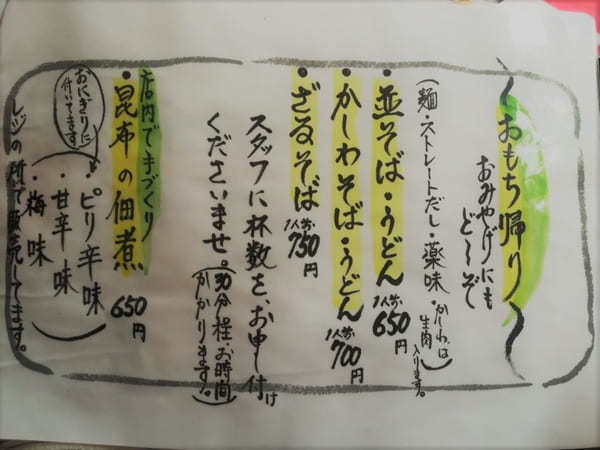 〜おもち帰り〜
おみやげにも
ど〜ぞ
(麺・ストレートだし・薬味・かしわは生肉入ります。)
・並そば・うどん 1人前650円
・かしわそば・うどん 1人前700円
・ざるそば 1人前750円
スタッフに杯数を、お申し付け
くださいませ。(30分程・お時間かかります。)
店内で手づくり
・昆布の佃煮 650円
おにぎりに
付いてます
(・ピリ辛味
・甘辛味
・梅味)
レジの所で販売してます。